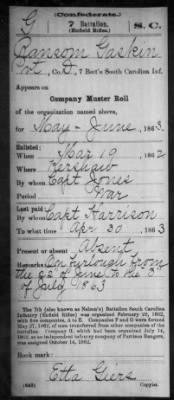 (Confederate.)
G 7 Battalion, S.C.
(Enfield Rifles.)
Ransom Gaskin
Pvt, Co. D, 7 Batt'n South Carolina Inf.
Appears on
Company Muster Roll
of the organization named above,
for May - June, 1863.
Enlisted:
When Mar 19, 1862
Where Kershaw
By whom Capt Jones
Period War
Last paid:
By whom Capt Harrison
To what time Apr 30, 1863
Present or absent Absent
Remarks: On furlough from
the 22 of June to the 3
of July 1863
The 7th (also known as Nelson's) Battalion South Carolina
Infantry (Enfield Rifles) was organized February 22, 1862,
with five companies, A to E. Companies F and G were formed
May 27, 1862, of men transferred from other companies of the
battalion. Company H, which had been organized July 14,
1862, as an independent company of Partisan Rangers,
was assigned October 14, 1862.
Book mark:
Etta Giers
(642) Copyist.